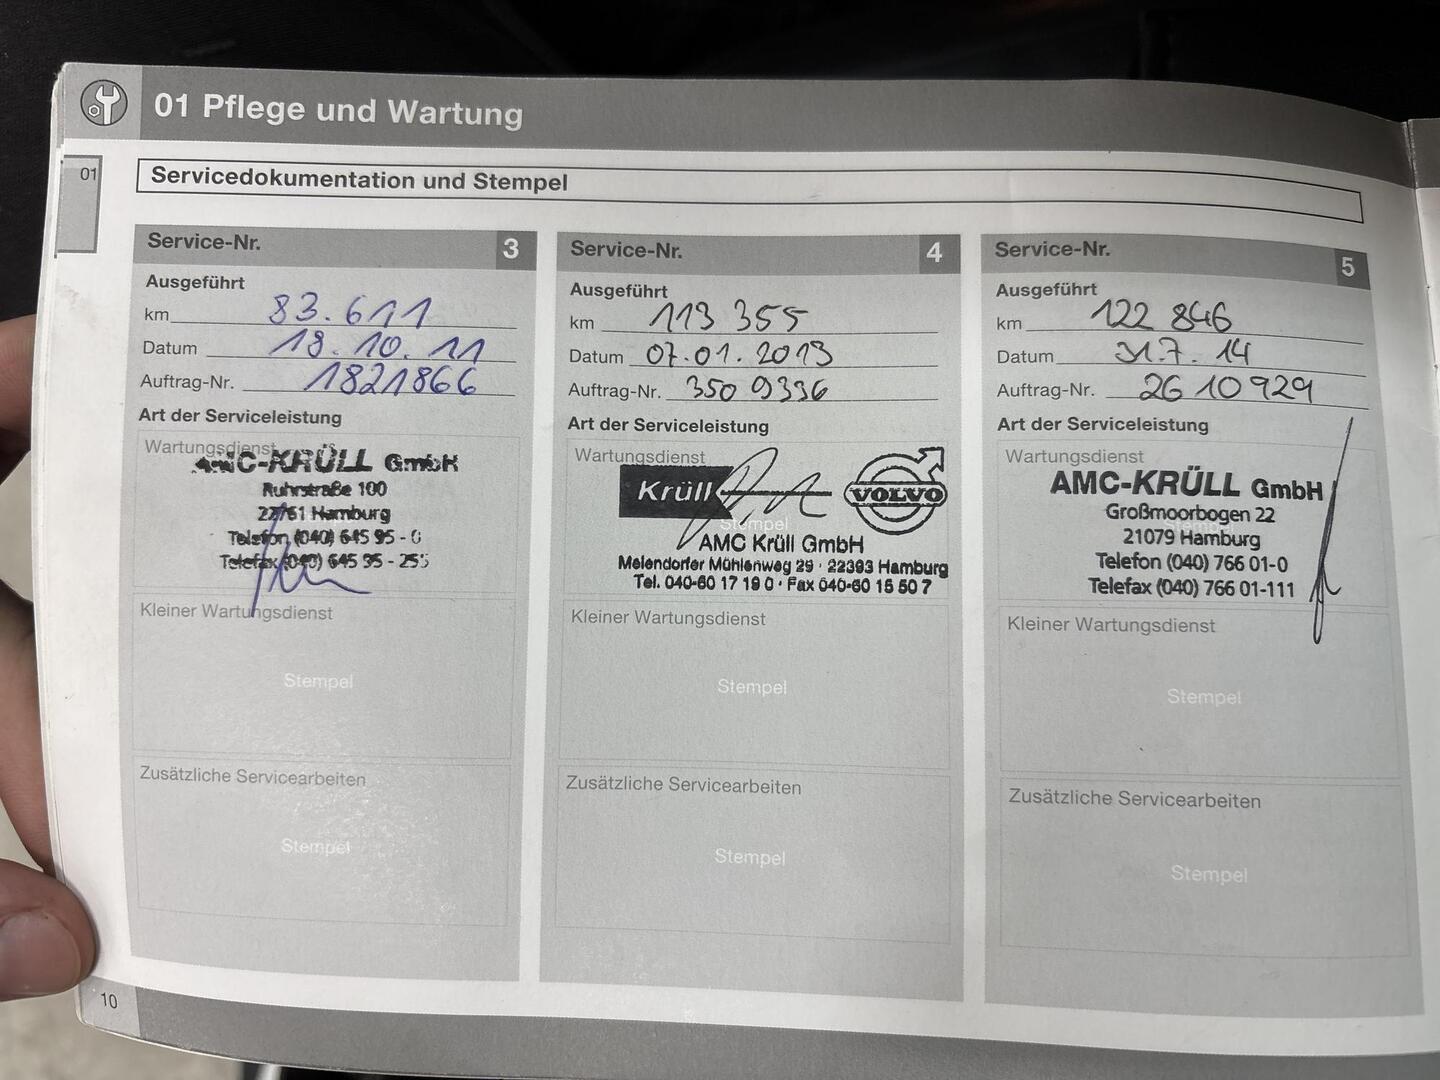 01 Pflege und Wartung
01
Servicedokumentation und Stempel
Service-Nr. 3
Ausgeführt
km 83.611
Datum 19.10.11
Auftrag-Nr. 1821866
Art der Serviceleistung
Wartungsdienst
AMC-KRÜLL GmbH
Ruhrstraße 100
22761 Hamburg
Telefon (040) 645 95 - 0
Telefax (040) 645 95 - 255
Kleiner Wartungsdienst
Stempel
Zusätzliche Servicearbeiten
Stempel
Service-Nr. 4
Ausgeführt
km 113 355
Datum 07.01.2013
Auftrag-Nr. 350 9336
Art der Serviceleistung
Wartungsdienst
Krüll
VOLVO
Stempel
AMC Krüll GmbH
Meiendorfer Mühlenweg 29 · 22393 Hamburg
Tel. 040-60 17 19 0 · Fax 040-60 15 50 7
Kleiner Wartungsdienst
Stempel
Zusätzliche Servicearbeiten
Stempel
Service-Nr. 5
Ausgeführt
km 122 846
Datum 31.7.14
Auftrag-Nr. 26 10 929
Art der Serviceleistung
Wartungsdienst
AMC-KRÜLL GmbH
Großmoorbogen 22
21079 Hamburg
Telefon (040) 766 01-0
Telefax (040) 766 01-111
Kleiner Wartungsdienst
Stempel
Zusätzliche Servicearbeiten
Stempel
10